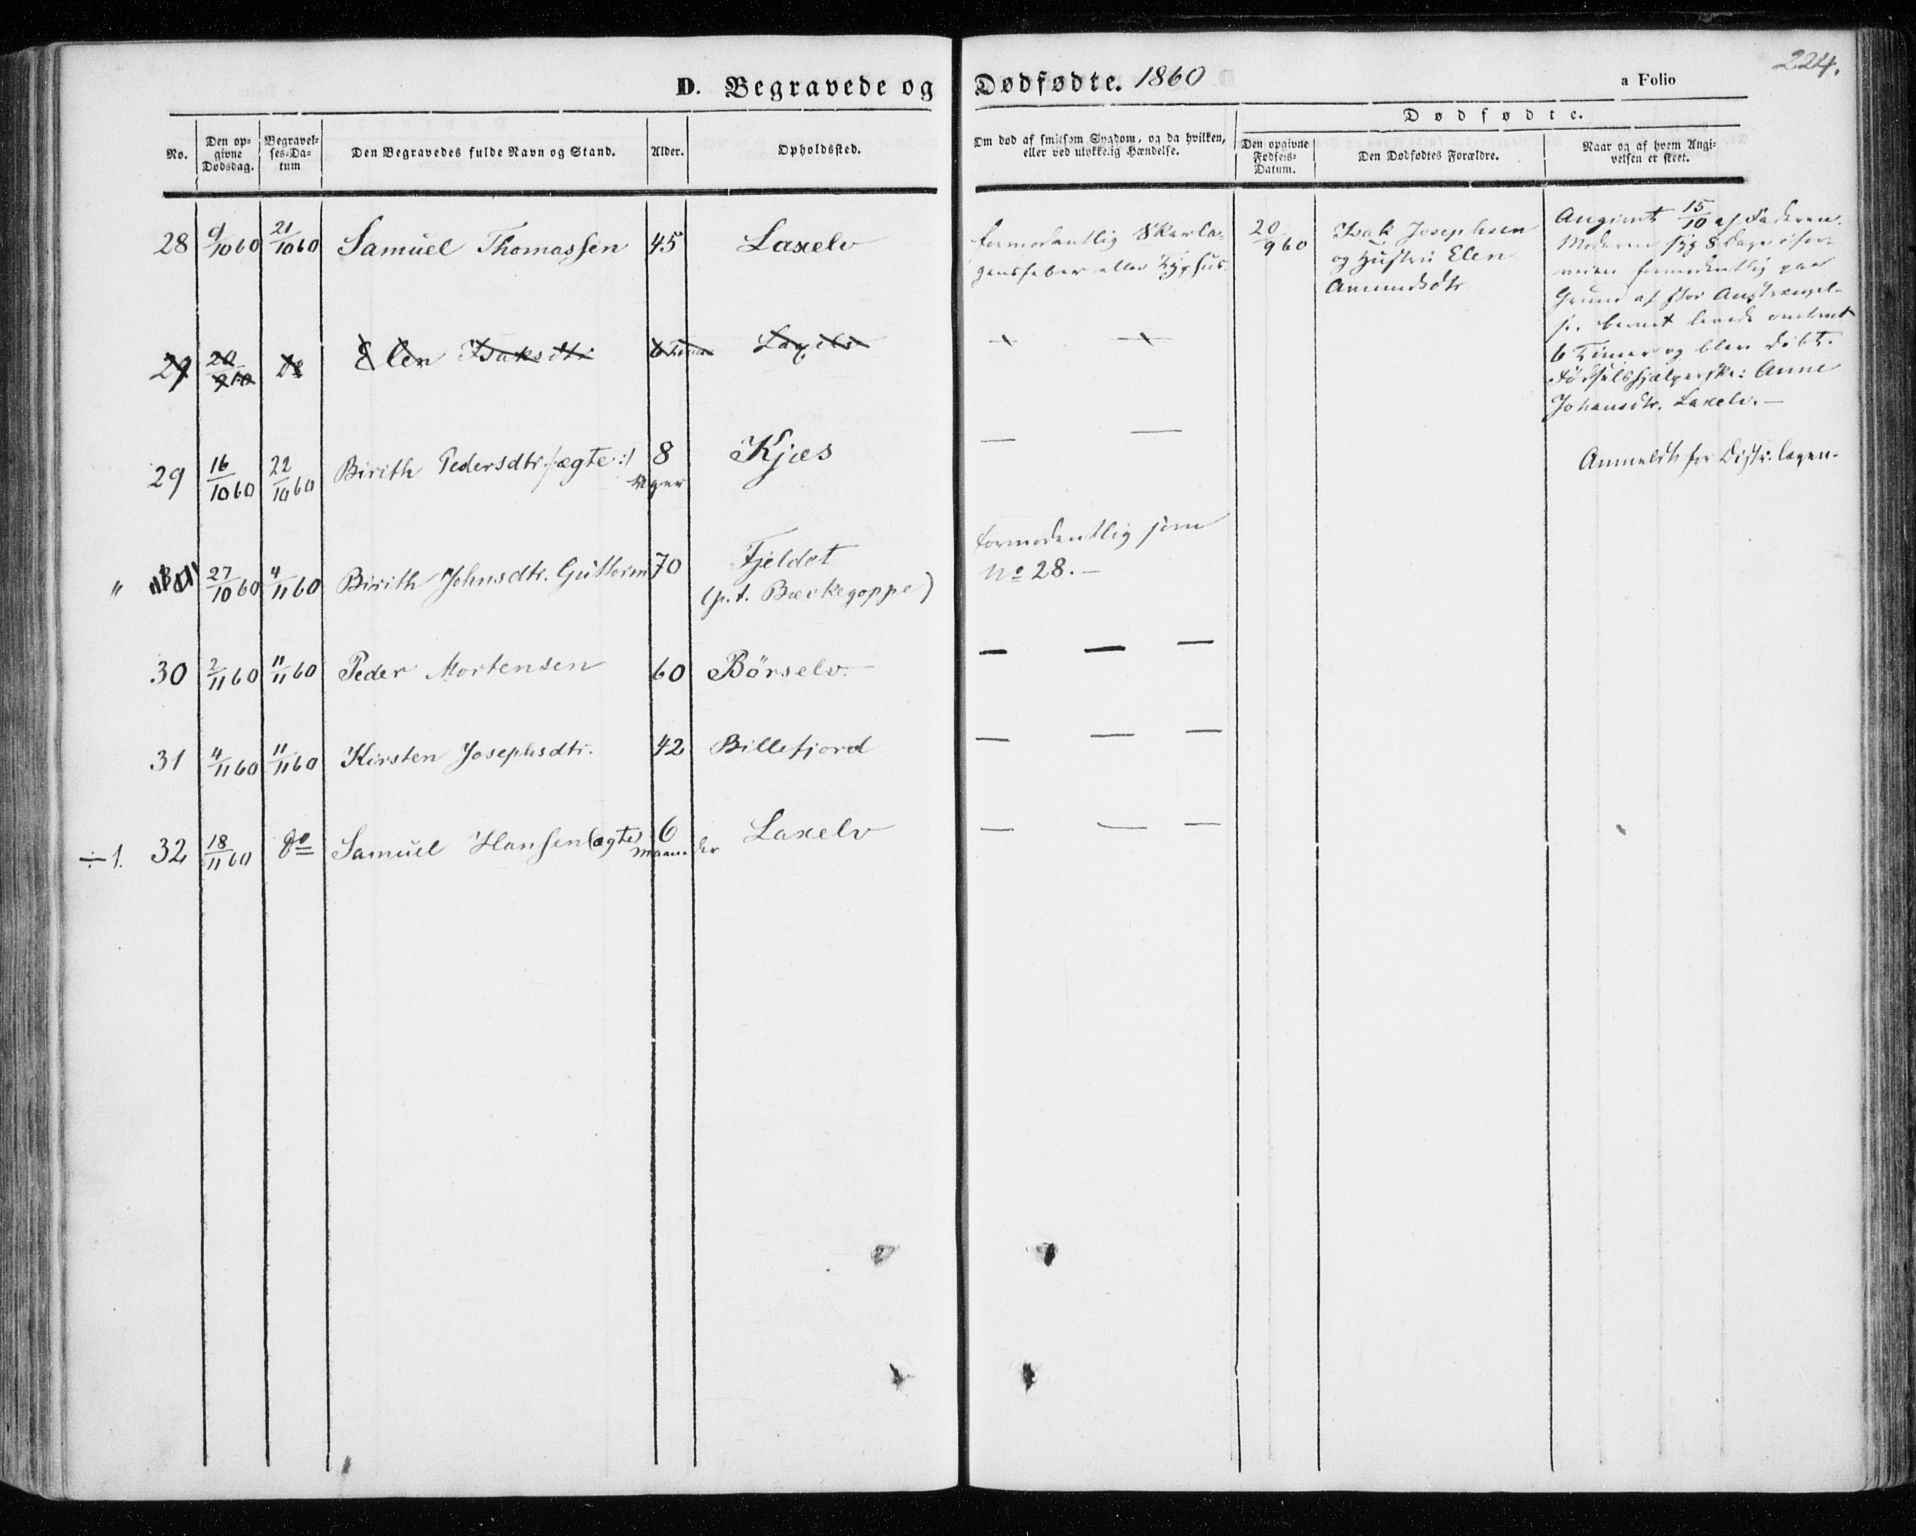 224.
D. Begravede og Dødfødte. 1860
a Folio
No.
Den op-
givne
Dødsdag.
Begravel-
ses-Da-
tum
Den Begravedes fulde Navn og Stand.
Alder.
Opholdssted.
Om død af smitsom Sygdom, og da hvilken,
eller ved ulykkelig Hændelse.
Dødfødte.
Den opgivne
Fødsels-
Datum.
Den Dødfødtes Forældre.
Naar og af hvem Angi-
velsen er skeet.
28 9/10 60 21/10 60 Samuel Thomassen 45 Laxelv
formodentlig Skarla-
gensfeber eller Typhus
20/9 60
Isak Josephsen
og Hustru Elen
Amundsdtr
Angivet 15/10 af Faderen.
Moderen syg 8 Dage i for-
veien formodentlig paa
Grund af stor Anstrengel-
se. barnet levede omtrent
6 Timer og blev døbt.
Fødselshjælperske: Anne
Johansdtr. Laxelv. —
29 20/9 60 Elen Isaksdtr 6 Timer Laxelv — —
29 16/10 60 22/10 60 Birith Pedersdtr /:ægte:/ 8 Uger Kjæs — —
Anmeldt for Distr. lægen.
" 27/10 60 4/11 60 Birith Johnsdtr. Guttorm 70 Fjeldet
(p.t. Bævkegoppe)
formodentlig som
No 28. —
30 2/11 60 11/11 60 Peder Mortensen 60 Børselv — — —
31 4/11 60 11/11 60 Kirsten Josephsdtr. 42 Billefjord — — —
÷1. 32 18/11 60 do Samuel Hansen (ægte) 6 Maaneder Laxelv — — —